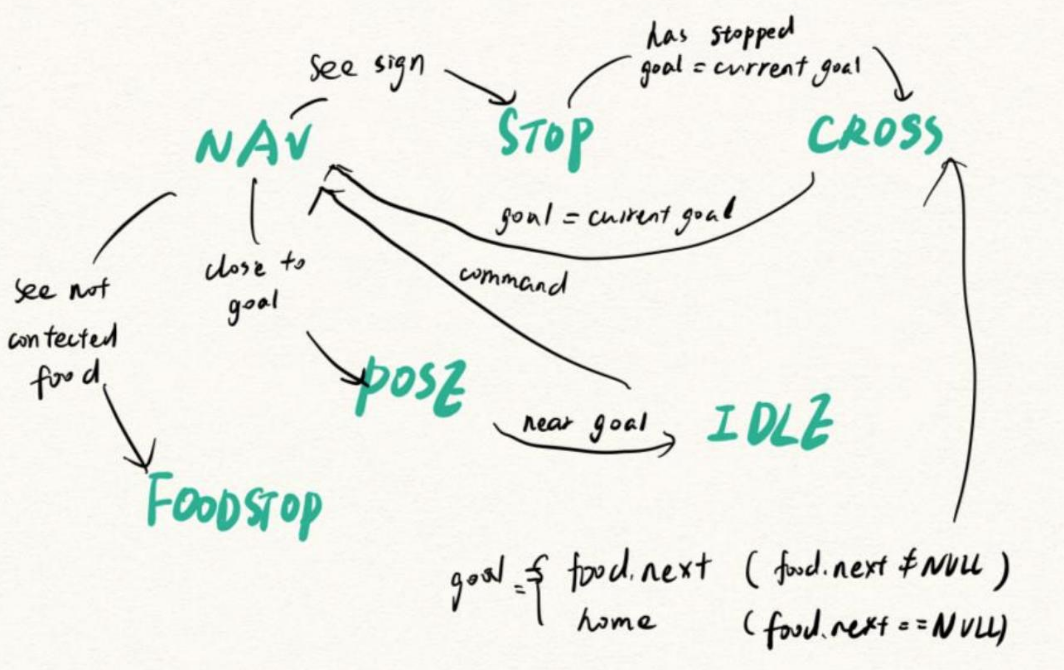 see sign
has stopped
goal = current goal
NAV
STOP
CROSS
goal = current goal
command
close to
goal
see not
contected
food
POSE
near goal
IDLE
FOODSTOP
goal = { food.next ( food.next ≠ NULL )
home ( food.next == NULL)